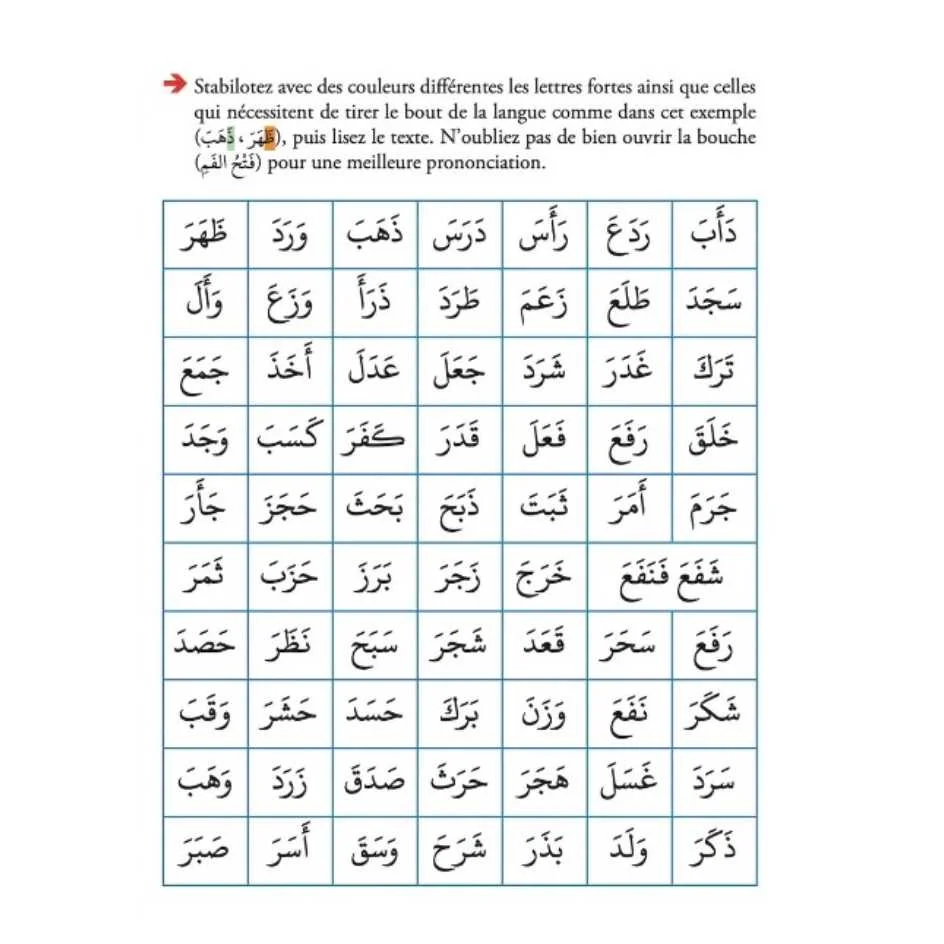 Stabilotez avec des couleurs différentes les lettres fortes ainsi que celles
qui nécessitent de tirer le bout de la langue comme dans cet exemple
(ظَهَرَ ، ذَهَبَ), puis lisez le texte. N’oubliez pas de bien ouvrir la bouche
(فَتْحُ الفَمِ) pour une meilleure prononciation.
دَأَبَ رَدَعَ رَأَسَ دَرَسَ ذَهَبَ وَرَدَ ظَهَرَ
سَجَدَ طَلَعَ زَعَمَ طَرَدَ ذَرَأَ وَزَعَ وَأَلَ
تَرَكَ غَدَرَ شَرَدَ جَعَلَ عَدَلَ أَخَذَ جَمَعَ
خَلَقَ رَفَعَ فَعَلَ قَدَرَ كَفَرَ كَسَبَ وَجَدَ
جَرَمَ أَمَرَ ثَبَتَ ذَبَحَ بَحَثَ حَجَزَ جَأَرَ
شَفَعَ فَنَفَعَ خَرَجَ زَجَرَ بَرَزَ حَزَبَ ثَمَرَ
رَفَعَ سَحَرَ قَعَدَ شَجَرَ سَبَحَ نَظَرَ حَصَدَ
شَكَرَ نَفَعَ وَزَنَ بَرَكَ حَسَدَ حَشَرَ وَقَبَ
سَرَدَ غَسَلَ هَجَرَ حَرَثَ صَدَقَ زَرَدَ وَهَبَ
ذَكَرَ وَلَدَ بَذَرَ شَرَحَ وَسَقَ أَسَرَ صَبَرَ